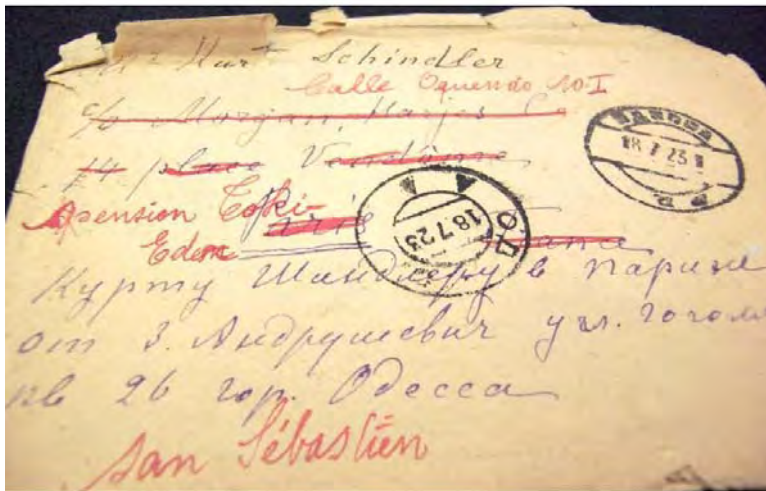 Kurt Schindler
Calle Oquendo 10-I
c/o Morgan, Harjes Co
14 place Vendôme
pension Eski-
Paris
Eden
18.7.23
18 7 23
Курту Шиндлеру в Париже
от З. Андрушевич угл. Гоголя
кв 26 гор. Одесса
San Sébastien